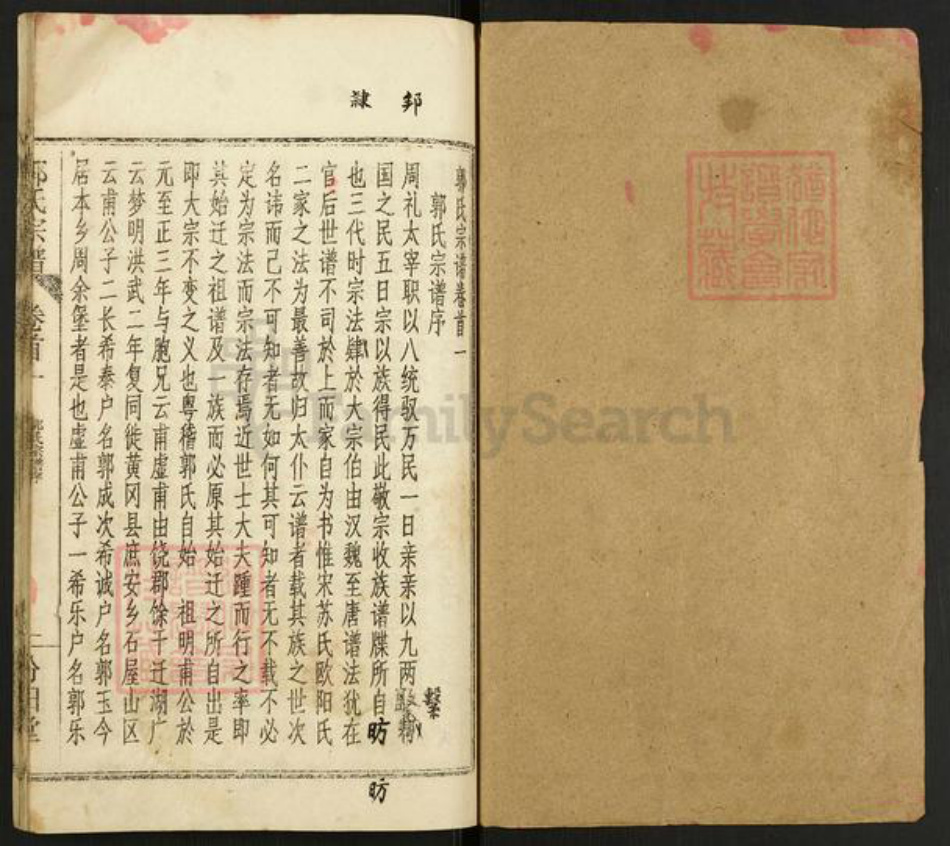 邦
隸
郭氏宗谱卷首一
郭氏宗谱序
周礼太宰职以八统驭万民一曰亲亲以九两
繫
国之民五曰宗以族得民此敬宗收族谱牒所自昉
昉
也三代时宗法肆於大宗伯由汉魏至唐谱法犹在
官后世谱不司於上而家自为书惟宋苏氏欧阳氏
二家之法为最善故归太仆云谱者载其族之世次
名讳而已不可知者无如何其可知者无不载不必
定为宗法而宗法存焉近世士大夫踵而行之率即
其始迁之祖谱及一族而必原其始迁之所自出是
即大宗不变之义也粤稽郭氏自始 祖明甫公於
元至正三年与胞兄云甫虚甫由饶郡馀干迁湖广
云梦明洪武二年复同徙黄冈县庶安乡石屋山区
云甫公子二长希泰户名郭成次希诚户名郭玉今
居本乡周余堡者是也虚甫公子一希乐户名郭乐
郭氏宗谱 卷首一 郭氏宗谱序 一 汾阳堂
FamilySearch